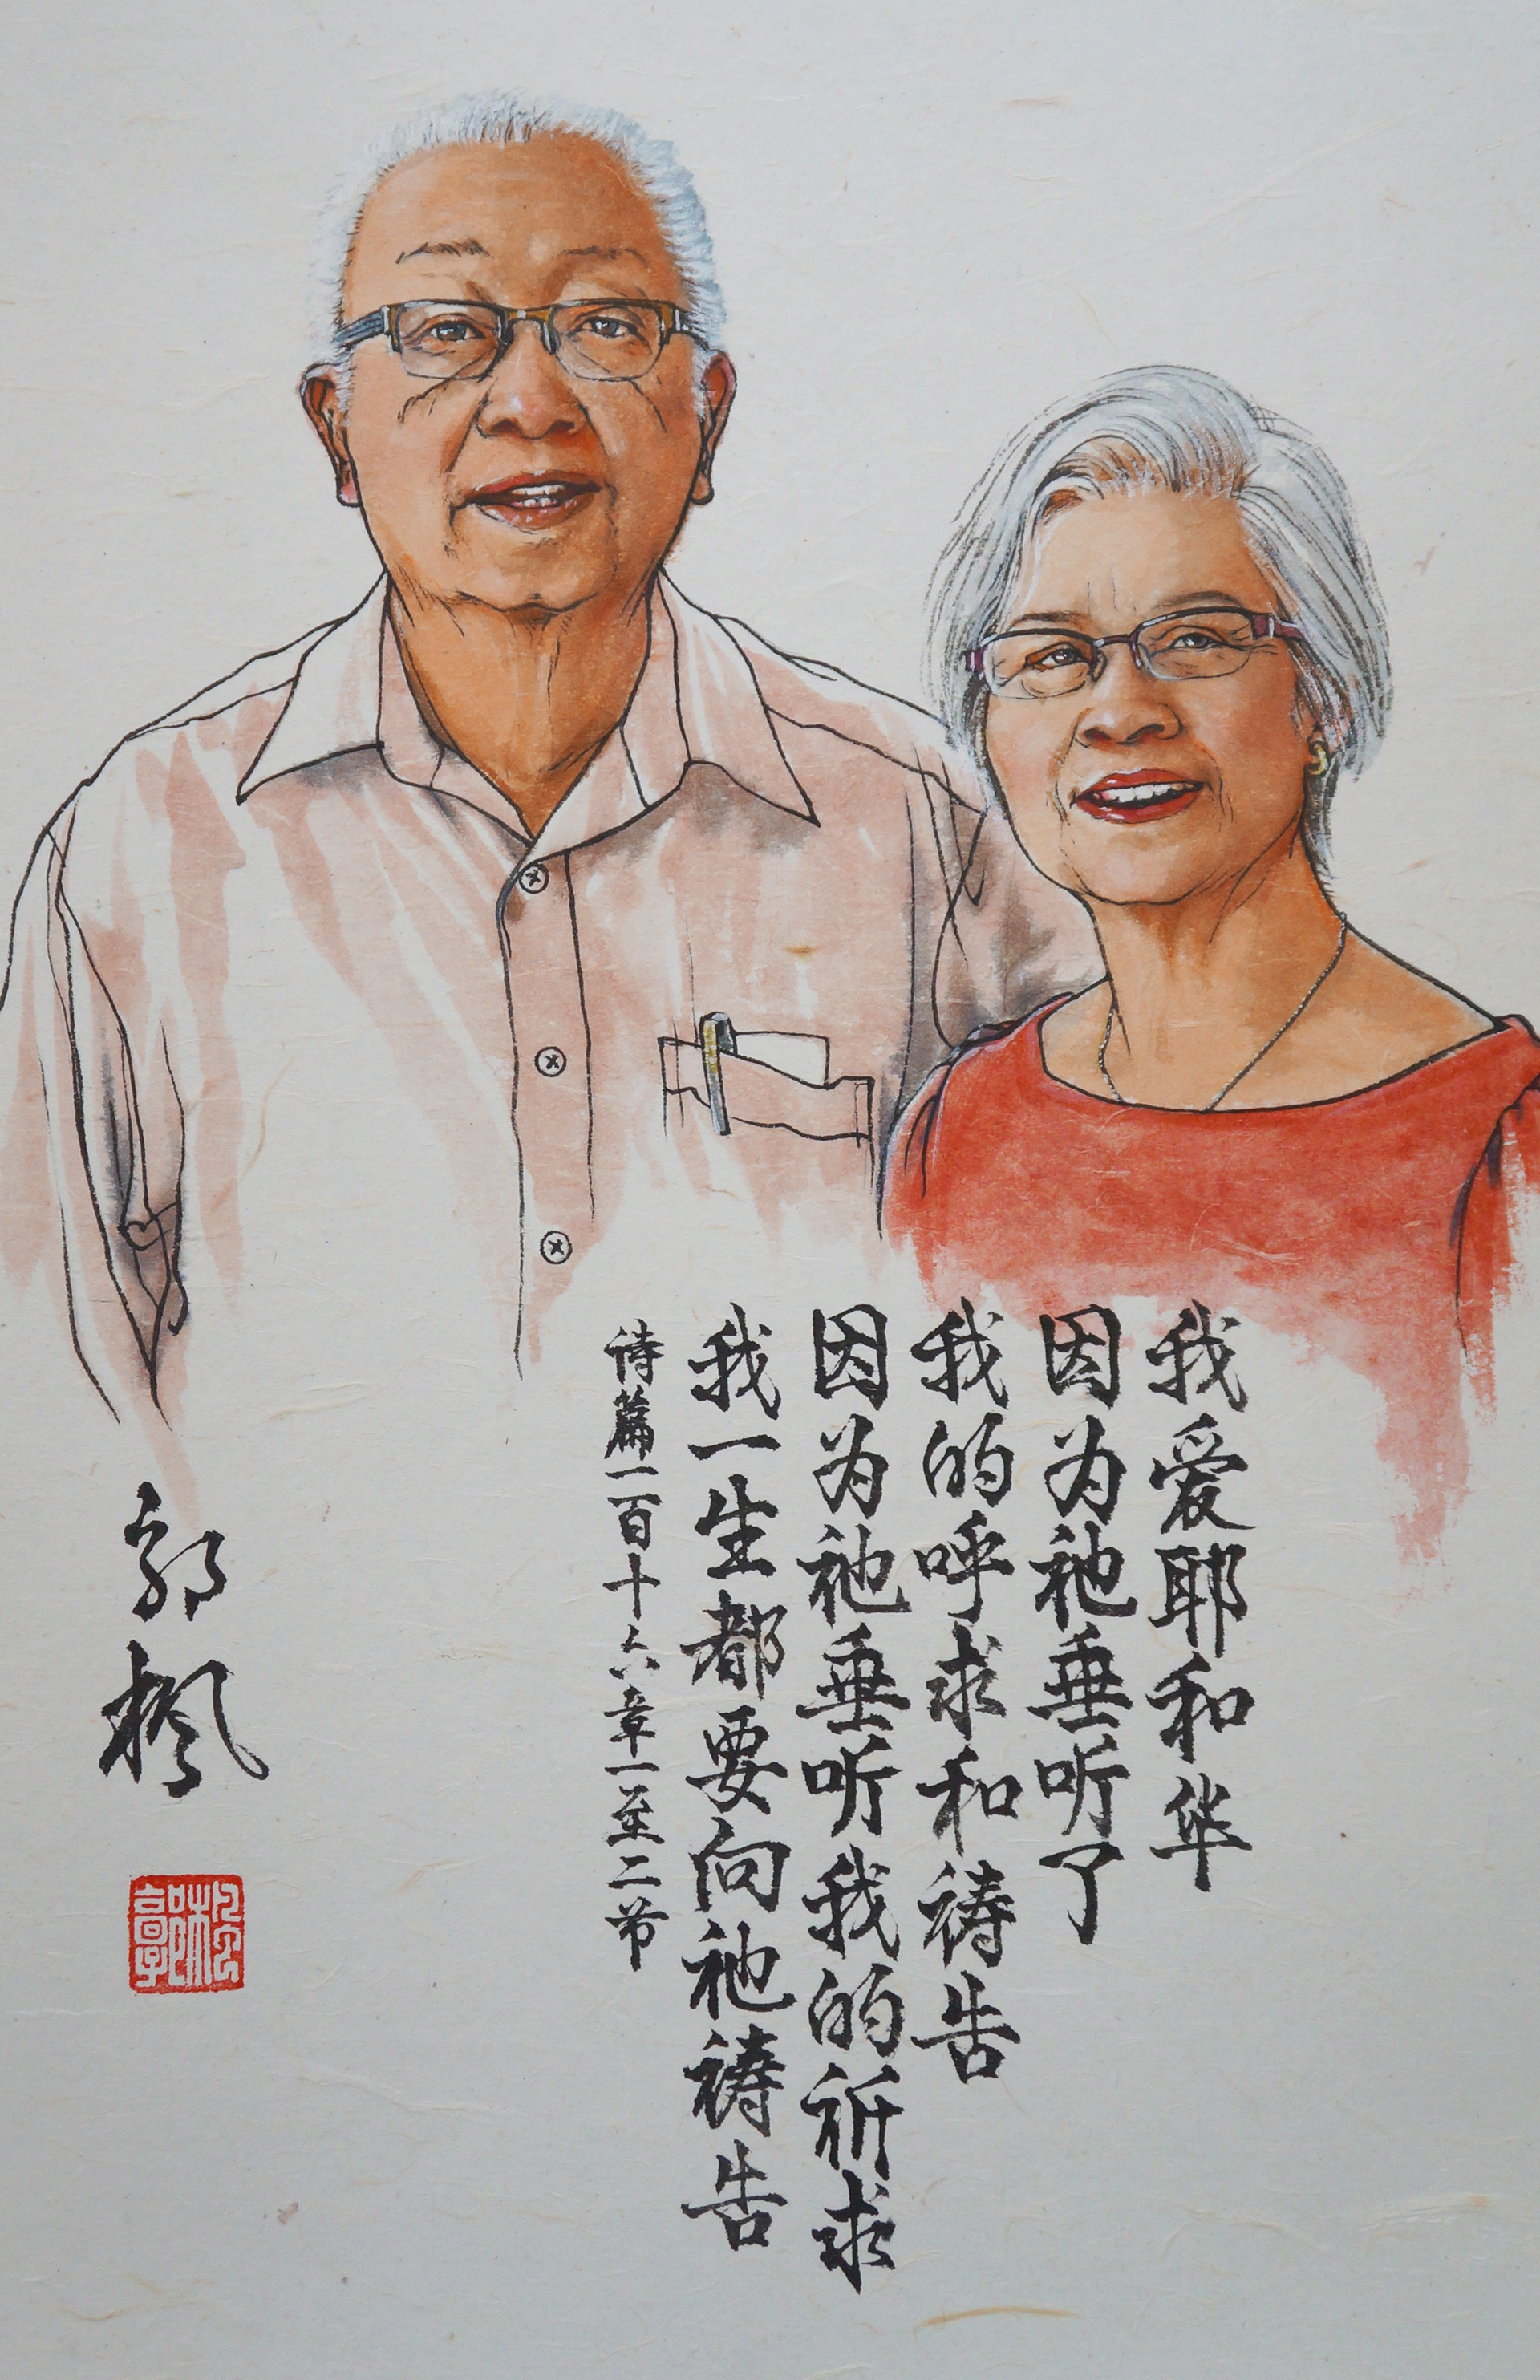 我爱耶和华
因为祂垂听了
我的呼求和祷告
因为祂垂听我的祈求
我一生都要向祂祷告
诗篇一百十六章一至二节
郭枫